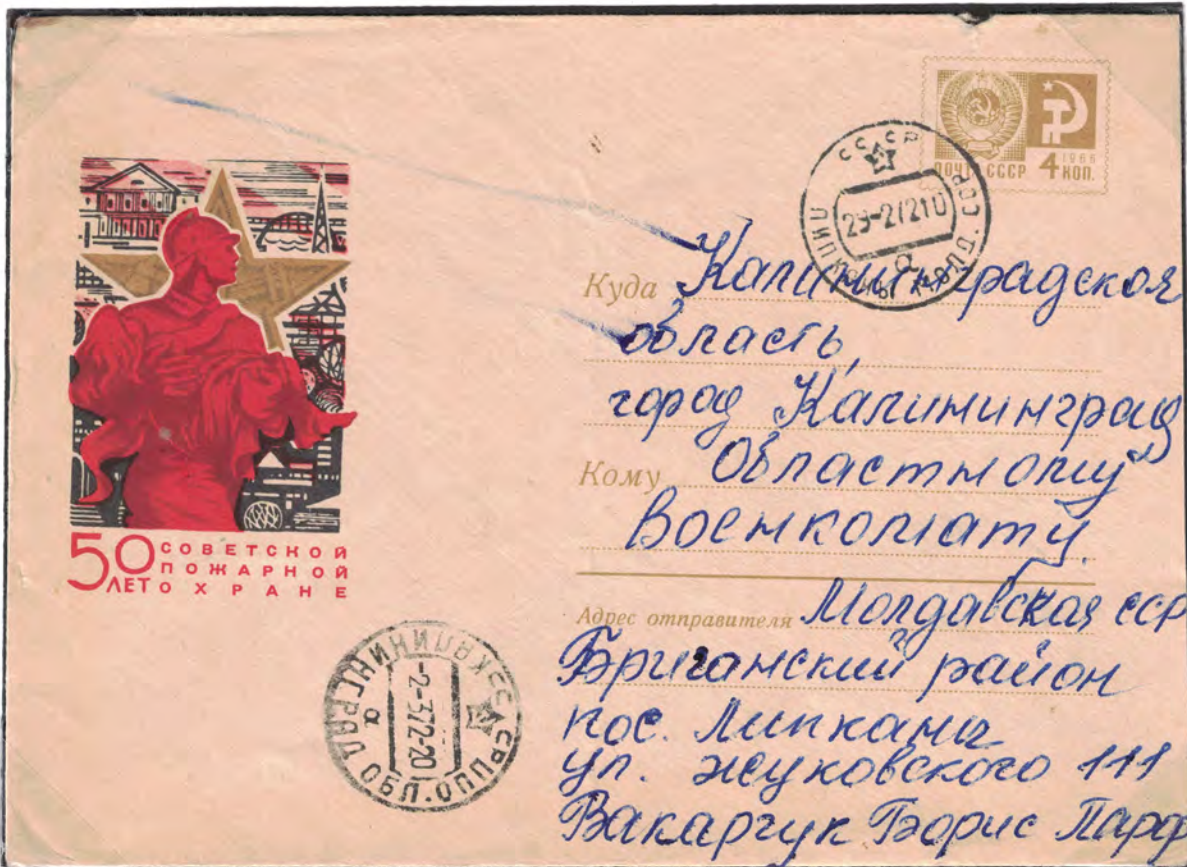 1966
ПОЧТА СССР 4 КОП.
СССР
29-2721
ЛИПКАНЫ
Куда Калининградская
область,
город Калининград
Кому Областному
Военкомату
Адрес отправителя Молдавская сср
Бричанский район
пос. Липкана
ул. жуковского 111
Вакарчук Борис Парф
50 ЛЕТ
СОВЕТСКОЙ
ПОЖАРНОЙ
ОХРАНЕ
СССР
КАЛИНИНГРАД ОБЛ. ОПП
-2-372-20
а